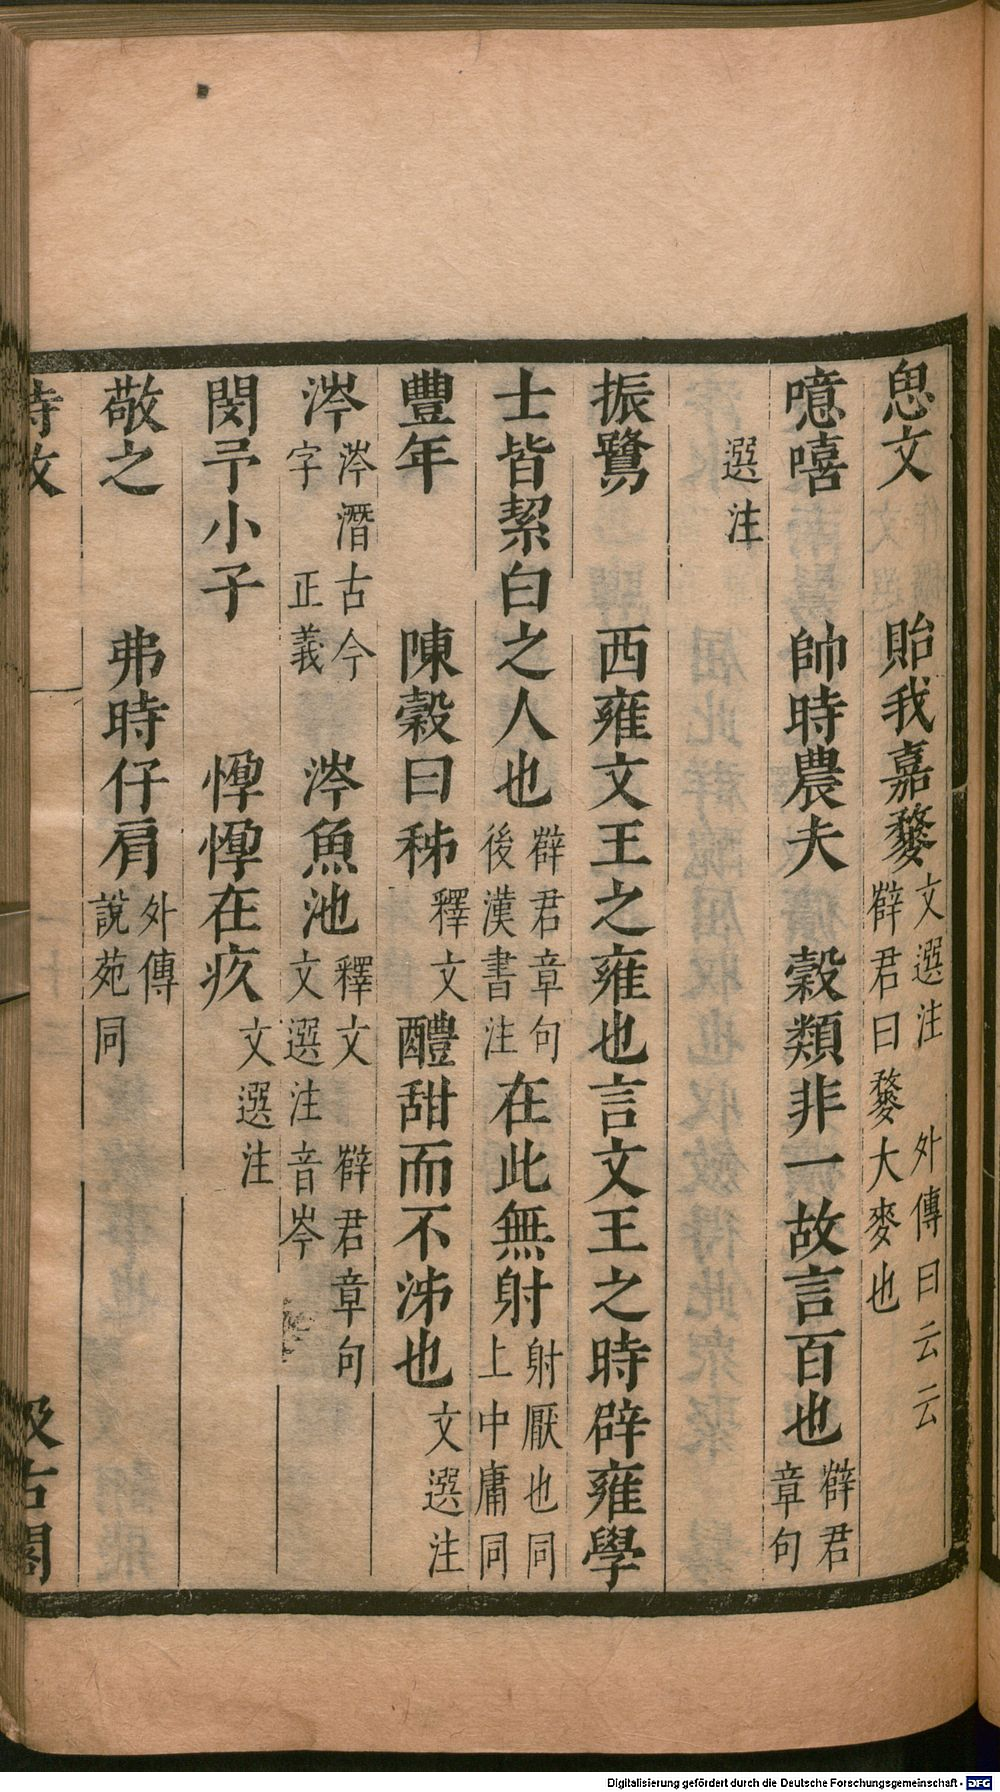 思文　貽我嘉䵄文選注　外傳曰云云薛君曰䵄大麥也
噫嘻　帥時農夫　穀類非一故言百也薛君章句
選注
振鷺　西雍文王之雍也言文王之時辟雍學
士皆絜白之人也薛君章句後漢書注在此無射射厭也同上中庸同
豐年　陳穀曰秭釋文　醴甜而不泲也文選注
涔涔潛古今字　正義　涔魚池釋文　薛君章句文選注音岑
閔予小子　惸惸在疚文選注
敬之　弗時仔肩外傳說苑同
詩攷
一十三
汲古閣
Digitalisierung gefördert durch die Deutsche Forschungsgemeinschaft - DFG